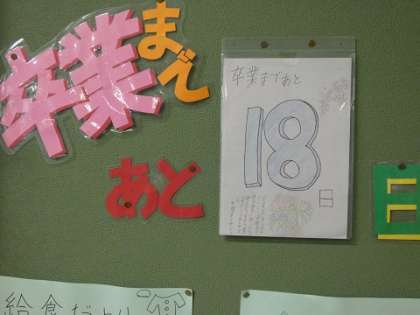 卒業まで
あと
卒業まであと
18
日
日
給食だより